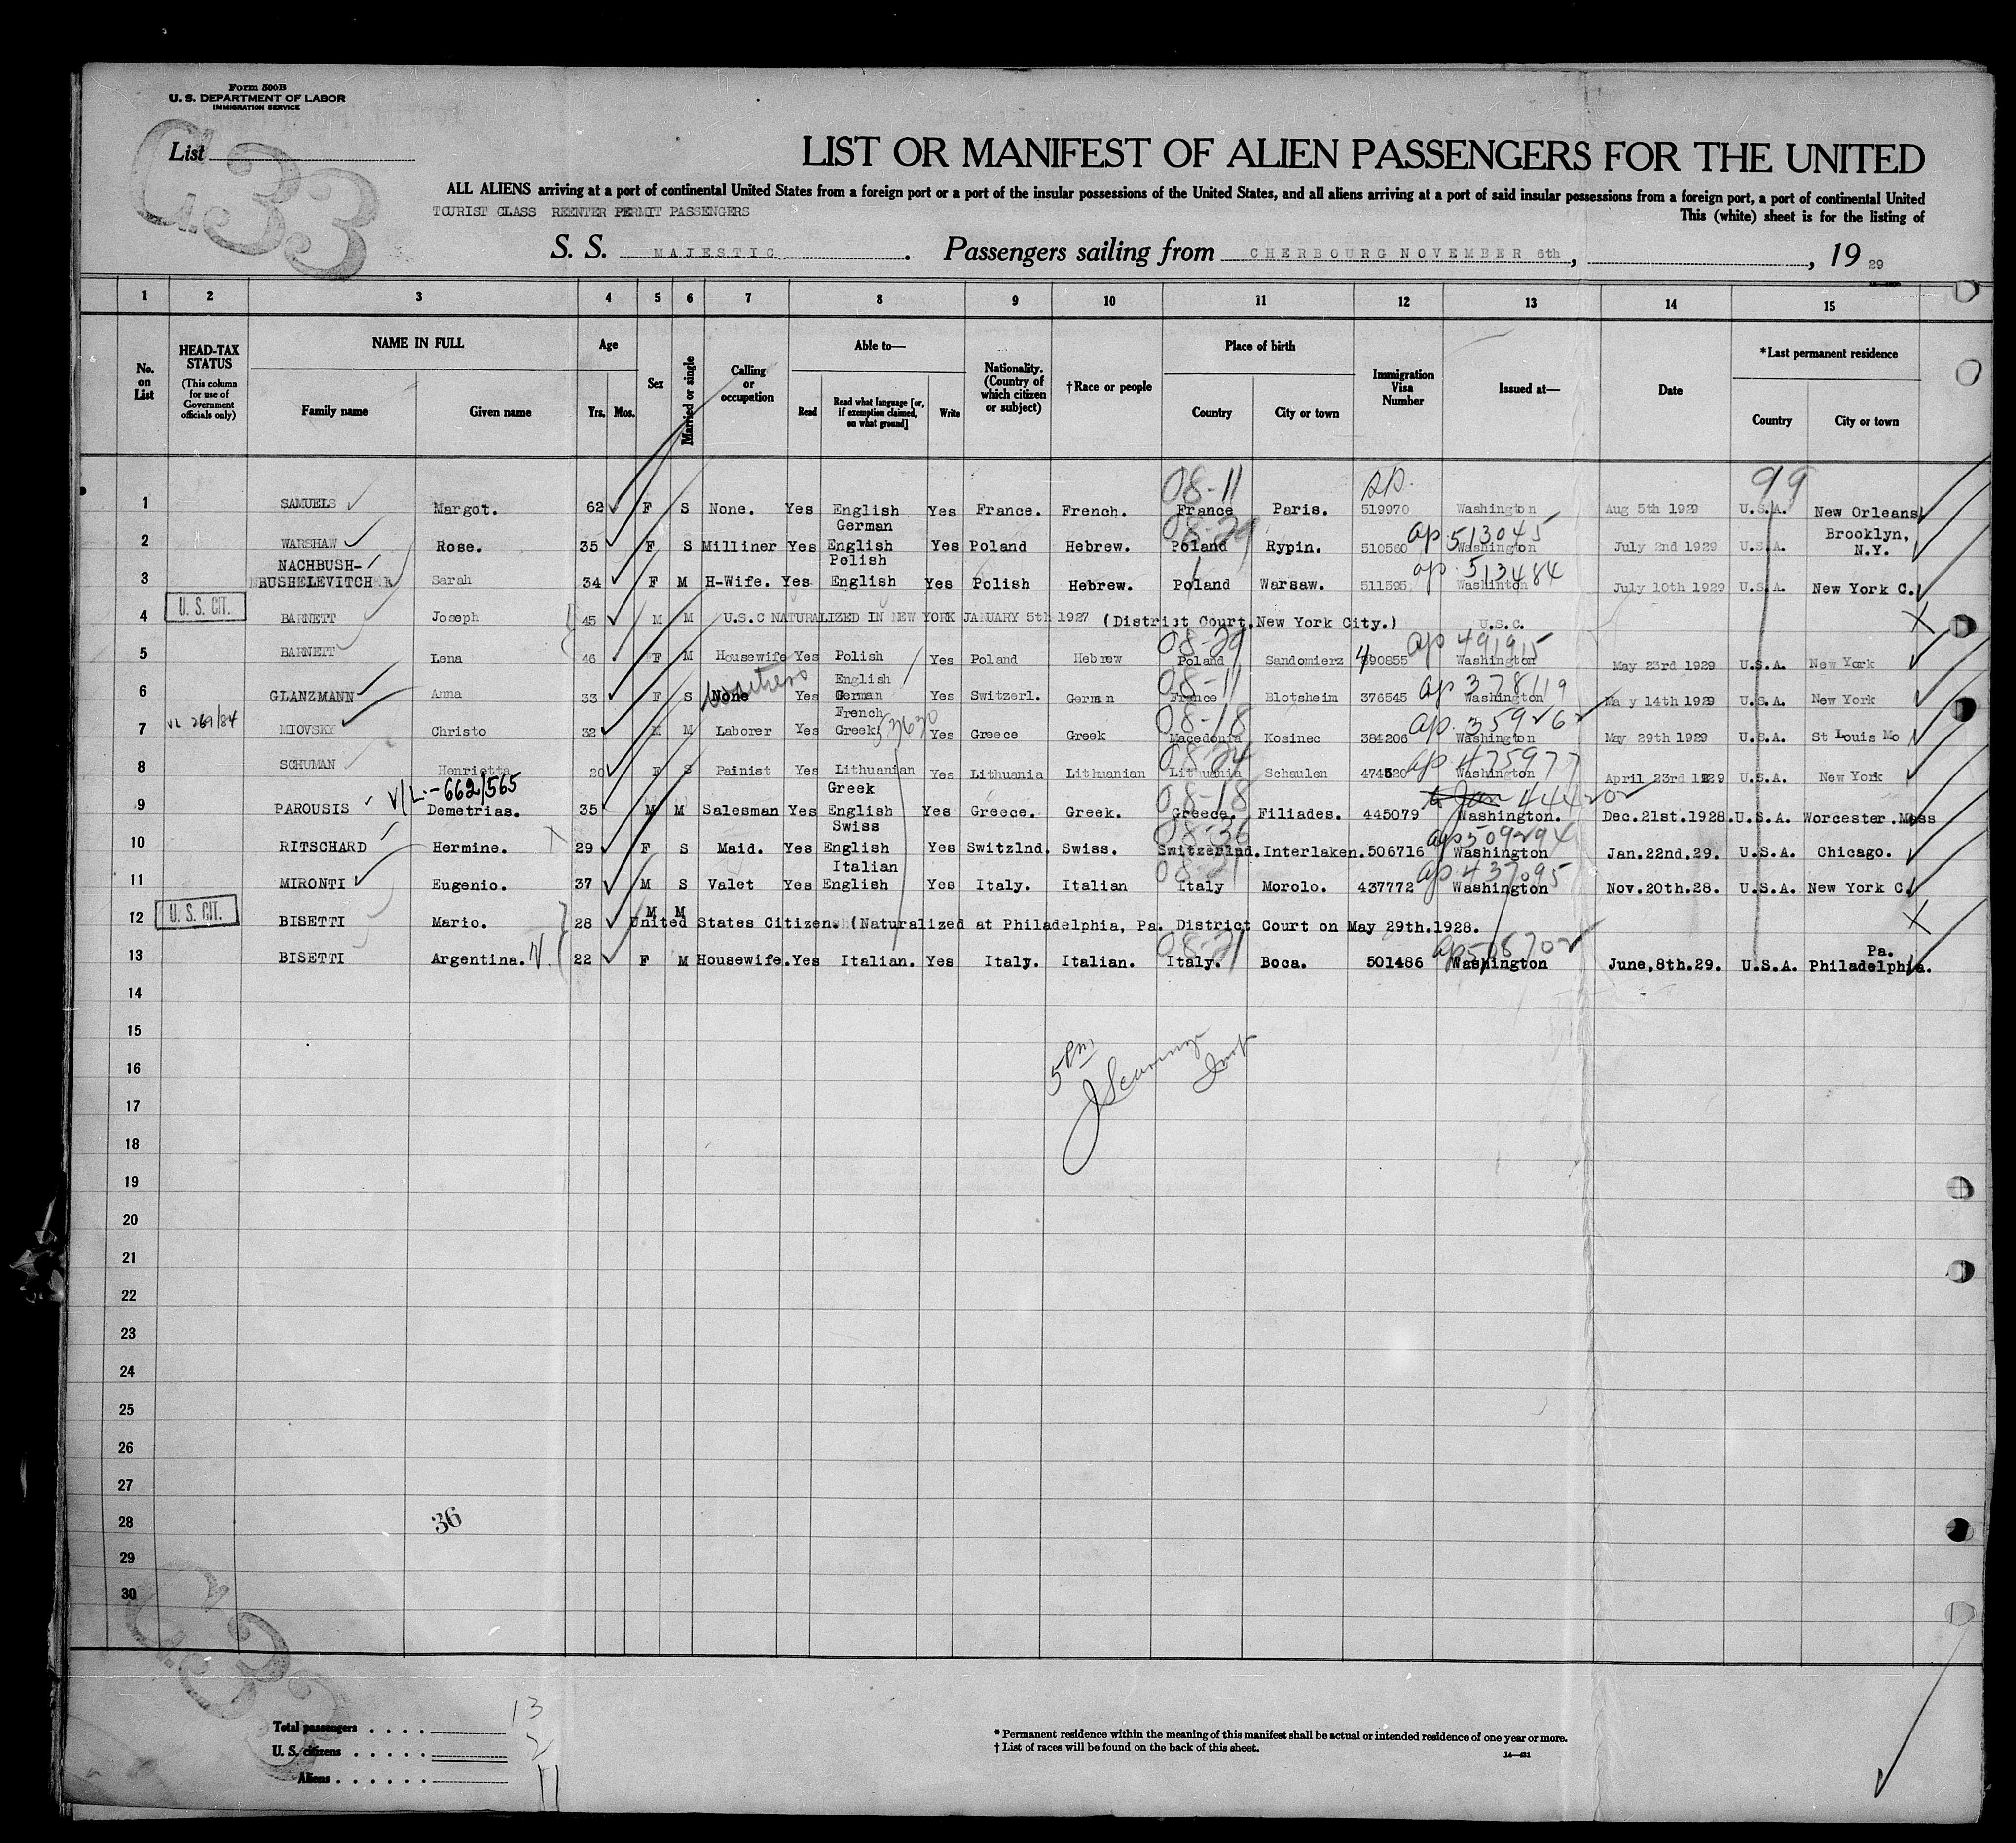 Form 500B
U. S. DEPARTMENT OF LABOR
IMMIGRATION SERVICE
List
G.33
LIST OR MANIFEST OF ALIEN PASSENGERS FOR THE UNITED
ALL ALIENS arriving at a port of continental United States from a foreign port or a port of the insular possessions of the United States, and all aliens arriving at a port of said insular possessions from a foreign port, a port of continental United
TOURIST CLASS REENTER PERMIT PASSENGERS
This (white) sheet is for the listing of
S. S. MAJESTIC. Passengers sailing from CHERBOURG NOVEMBER 6th, , 19 29
1 2 3 4 5 6 7 8 9 10 11 12 13 14 15
No. on List
HEAD-TAX STATUS (This column for use of Government officials only)
NAME IN FULL
Family name Given name
Age
Yrs. Mos.
Sex
Married or single
Calling or occupation
Able to—
Read Read what language [or, if exemption claimed, on what ground] Write
Nationality. (Country of which citizen or subject)
†Race or people
Place of birth
Country City or town
Immigration Visa Number
Issued at—
Date
*Last permanent residence
Country City or town
08-11 99
1 SAMUELS Margot. 62 F S None. Yes English German Yes France. French. France Paris. 519970 Washington Aug 5th 1929 U.S.A. New Orleans
08-29 ap 513045
2 WARSHAW Rose. 35 F S Milliner Yes English Polish Yes Poland Hebrew. Poland Rypin. 510560 Washington July 2nd 1929 U.S.A. Brooklyn, N.Y.
ap 513484
3 NACHBUSH- BUSHELEVITCHER Sarah 34 F M H-Wife. Yes English Yes Polish Hebrew. Poland Warsaw. 511595 Washinton July 10th 1929 U.S.A. New York C.
4 U. S. CIT. BARNETT Joseph 45 M M U.S.C NATURALIZED IN NEW YORK JANUARY 5th 1927 (District Court, New York City.) U.S.C.
08-29 ap 491915
5 BARNETT Lena 46 F M Housewife Yes Polish Yes Poland Hebrew Poland Sandomierz 490855 Washington May 23rd 1929 U.S.A. New York
08-11 ap 378119
6 GLANZMANN Anna 33 F S None Waitress Yes English German French Yes Switzerl. German France Blotsheim 376545 Washington May 14th 1929 U.S.A. New York
08-18 ap. 359262
7 VL 269/84 MIOVSKY Christo 32 M M Laborer Yes Greek Yes Greece Greek Macedonia Kosinec 384206 Washington May 29th 1929 U.S.A. St Louis Mo
08-24 ap 475977
8 SCHUMAN Henrietta 20 F S Painist Yes Lithuanian Yes Lithuania Lithuanian Lithuania Schaulen 474520 Washington April 23rd 1929 U.S.A. New York
V/L:-662/565 08-18 444202
9 PAROUSIS Demetrias. 35 M M Salesman Yes Greek English Yes Greece. Greek. Greece. Filiades. 445079 Washington. Dec.21st.1928. U.S.A. Worcester.Mass
08-36 ap 509294
10 RITSCHARD Hermine. 29 F S Maid. Yes Swiss English Yes Switzlnd. Swiss. Switzerlnd. Interlaken. 506716 Washington Jan.22nd.29. U.S.A. Chicago.
08-21 ap 437095
11 MIRONTI Eugenio. 37 M S Valet Yes Italian English Yes Italy. Italian Italy Morolo. 437772 Washington Nov.20th.28. U.S.A. New York C.
12 U. S. CIT. BISETTI Mario. 28 M M United States Citizen. (Naturalized at Philadelphia, Pa. District Court on May 29th.1928.
08-21 ap 508702
13 BISETTI Argentina. 22 F M Housewife. Yes Italian. Yes Italy. Italian. Italy. Boca. 501486 Washington June,8th.29. U.S.A. Pa. Philadelphia.
14
15
16
5 Pm
17
18
19
20
21
22
23
24
25
26
27
28
36
29
30
G.33
Total passengers . . . . 13
U. S. citizens . . . . . 2
Aliens . . . . . . 11
* Permanent residence within the meaning of this manifest shall be actual or intended residence of one year or more.
† List of races will be found on the back of this sheet.
14—431